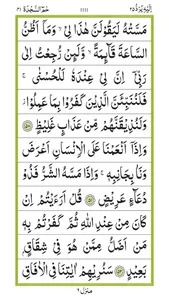 اليه يرد ٢٥
١١١١
حٰمٓ السجدة ٤١
مَسَّتْهُ لَيَقُوْلَنَّ هٰذَا لِيْ ۙ وَمَاۤ اَظُنُّ
السَّاعَةَ قَآئِمَةً ۙ وَّلَئِنْ رُّجِعْتُ اِلٰى
رَبِّيْۤ اِنَّ لِيْ عِنْدَهٗ لَلْحُسْنٰى ۚ
فَلَنُنَبِّئَنَّ الَّذِيْنَ كَفَرُوْا بِمَا عَمِلُوْا ۡ
وَلَنُذِيْقَنَّهُمْ مِّنْ عَذَابٍ غَلِيْظٍ ﴿٥٠﴾
وَاِذَاۤ اَنْعَمْنَا عَلَى الْاِنْسَانِ اَعْرَضَ
وَنَاٰ بِجَانِبِهٖ ۚ وَاِذَا مَسَّهُ الشَّرُّ فَذُوْ
دُعَآءٍ عَرِيْضٍ ﴿٥١﴾ قُلْ اَرَءَيْتُمْ اِنْ
كَانَ مِنْ عِنْدِ اللّٰهِ ثُمَّ كَفَرْتُمْ بِهٖ
مَنْ اَضَلُّ مِمَّنْ هُوَ فِيْ شِقَاقٍۢ
بَعِيْدٍ ﴿٥٢﴾ سَنُرِيْهِمْ اٰيٰتِنَا فِي الْاٰفَاقِ
منزل ٦